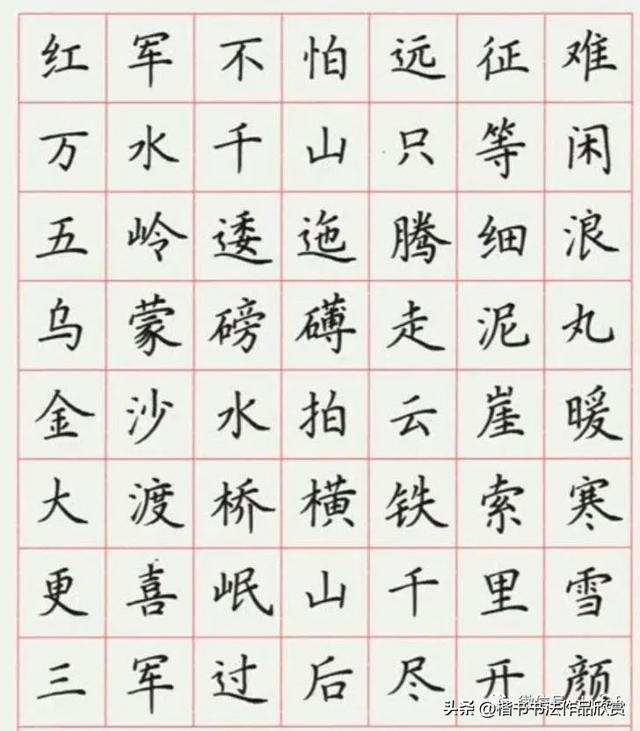 红军不怕远征难
万水千山只等闲
五岭逶迤腾细浪
乌蒙磅礴走泥丸
金沙水拍云崖暖
大渡桥横铁索寒
更喜岷山千里雪
三军过后尽开颜
头条 @楷书书法作品欣赏